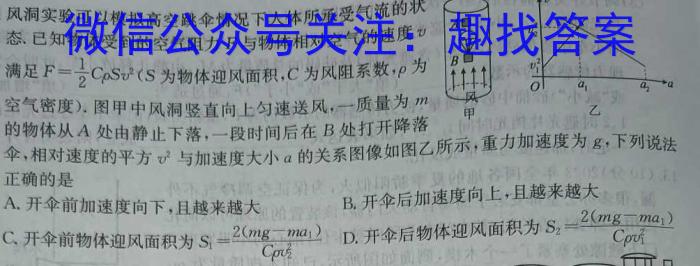 风洞实验可以模拟高空跳伞情况下人体所承受气流的状
微信公众号关注：趣找答案
态.已知物体受到的空气阻力F与物体相对空气的速度v
满足F=\frac{1}{2}CρSv²(S为物体迎风面积,C为风阻系数,ρ为
空气密度).图甲中风洞竖直向上匀速送风,一质量为m
的物体从A处由静止下落,一段时间后在B处打开降落
伞,相对速度的平方v²与加速度大小a的关系图像如图乙所示,重力加速度为g,下列说法
正确的是
A.开伞前加速度向下,且越来越大
B.开伞后加速度向上,且越来越大
C.开伞前物体迎风面积为S₁=\frac{2(mg-ma₁)}{Cρv₂²}
D.开伞后物体迎风面积为S₂=\frac{2(mg-ma₁)}{Cρv₁²}
B
风
甲
O
a₁
a₂
a
乙